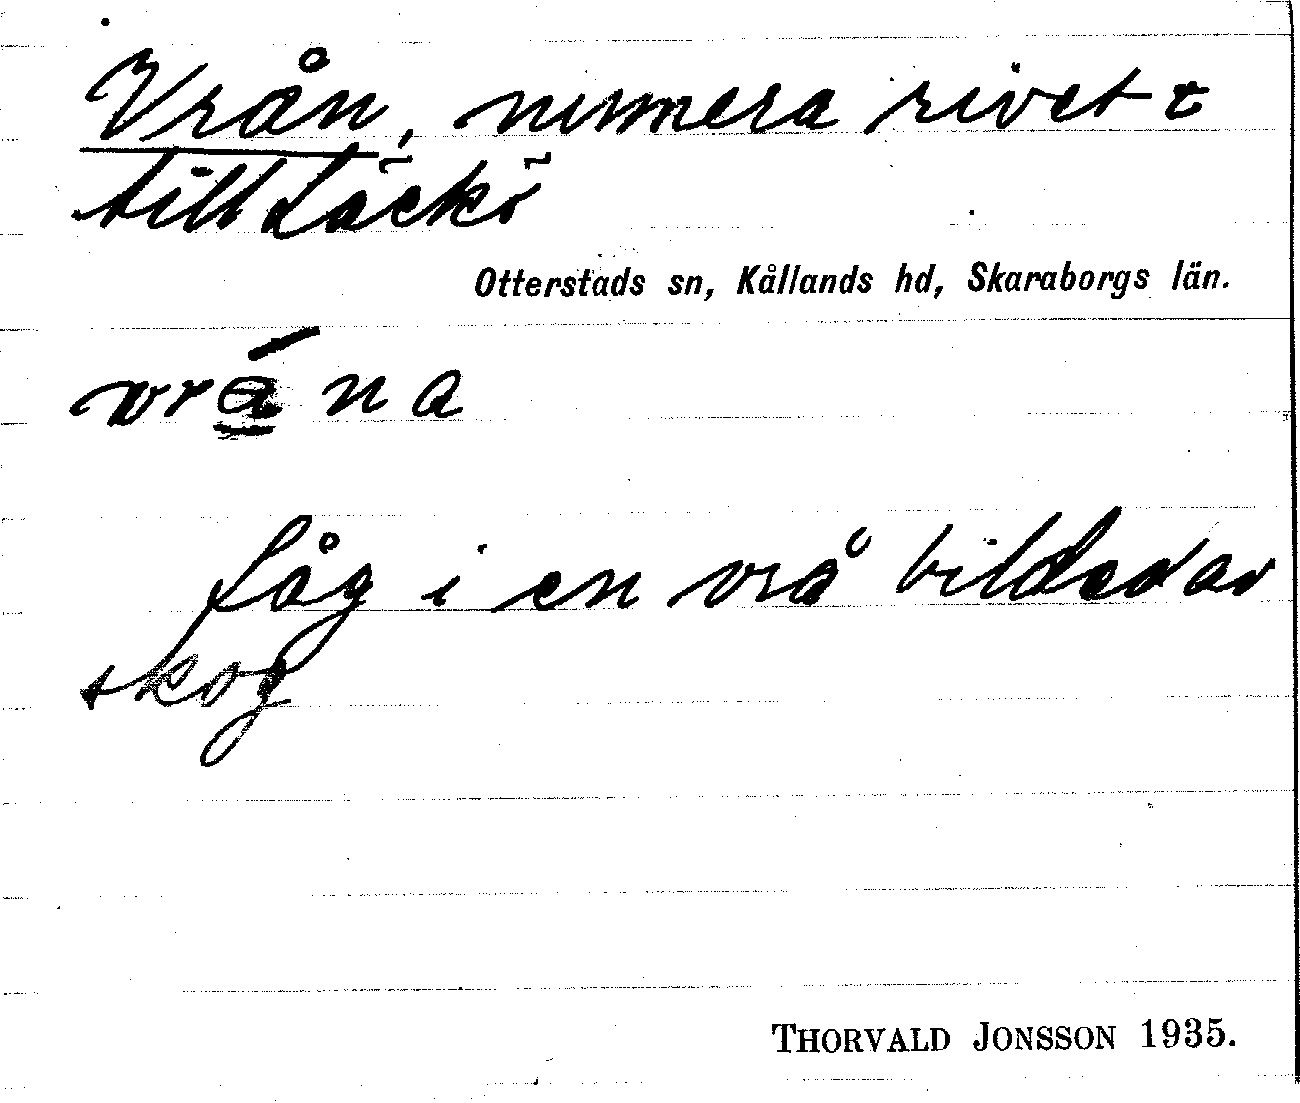 Vrån, numera rivet t
till Läckö
Otterstads sn, Kållands hd, Skaraborgs län.
vrána
Låg i en vrå bildad av
skog
THORVALD JONSSON 1935.